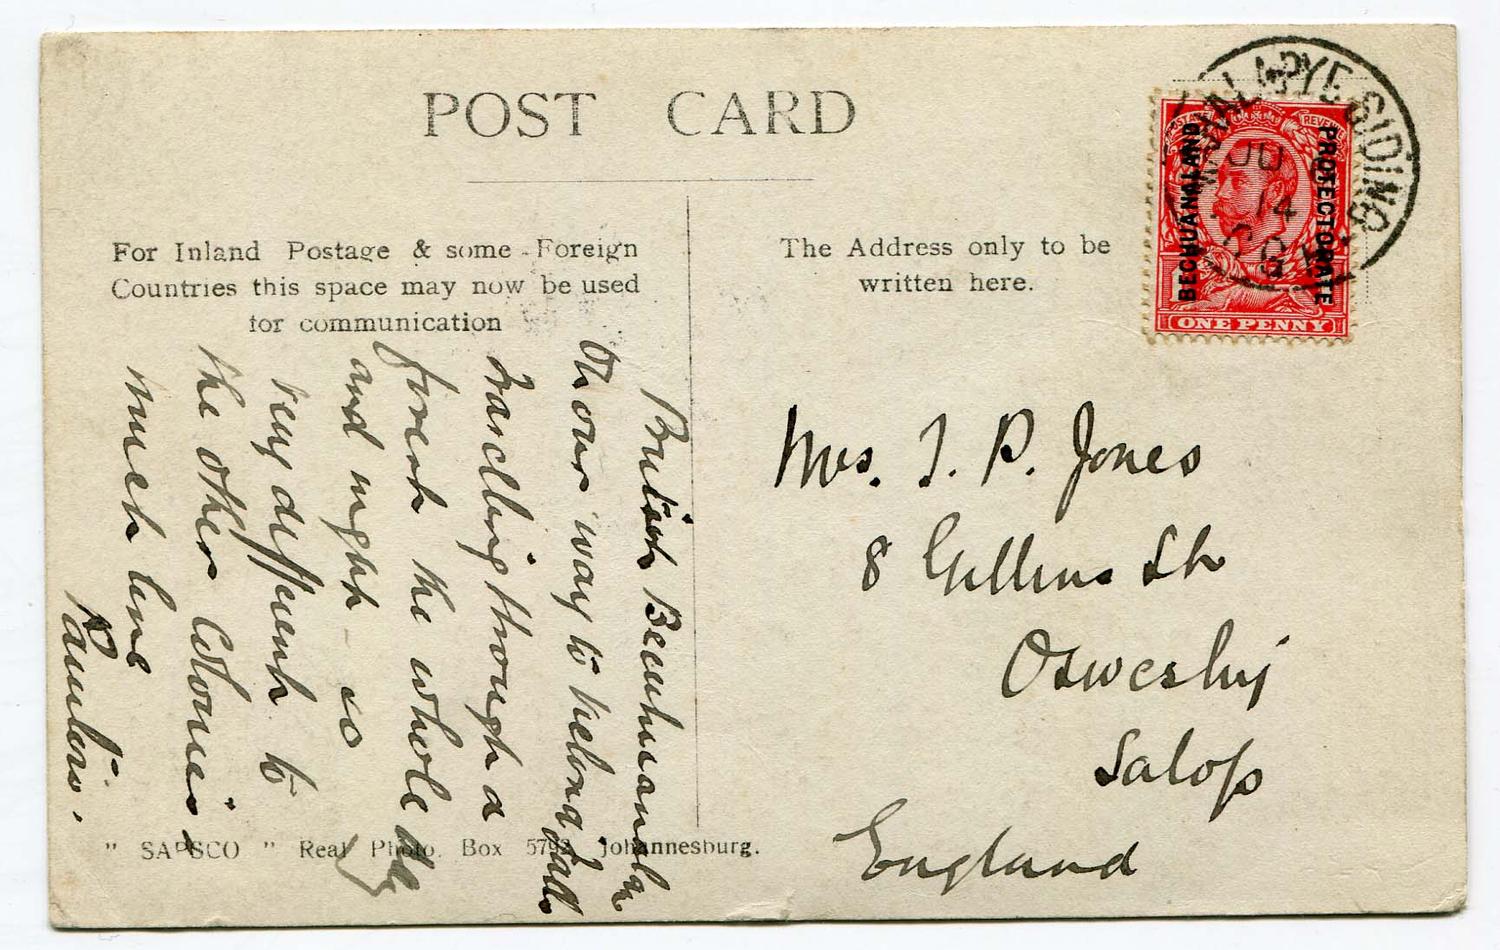 POST CARD
For Inland Postage & some Foreign
Countries this space may now be used
for communication
The Address only to be
written here.
BECHUANALAND
PROTECTORATE
POSTAGE
REVENUE
ONE PENNY
MAHALAPYE SIDING
JU
14
British Bechuanaland
On our way to
travelling through a
forest the whole day
and night so
very different to
the other Colonies
much love
Mrs. J. P. Jones
8 St
Oswestry
Salop
England
" SAPSCO " Real Photo. Box 5792, Johannesburg.